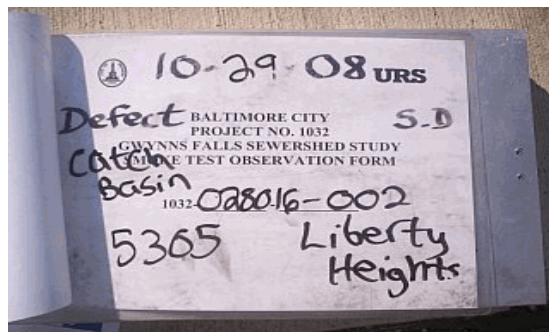 10-29-08 URS
Defect BALTIMORE CITY S.D
PROJECT NO. 1032
GWYNNS FALLS SEWERSHED STUDY
Catch SMOKE TEST OBSERVATION FORM
Basin
1032-028016-002
5365 Liberty
Heights